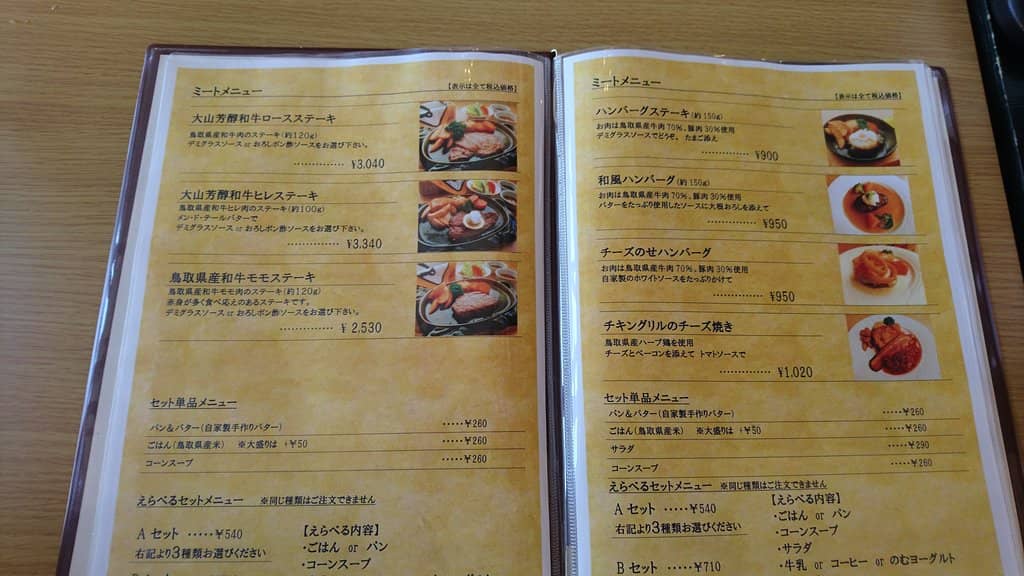 ミートメニュー
【表示は全て税込価格】
大山芳醇和牛ロースステーキ
鳥取県産和牛肉のステーキ(約120g)
デミグラスソース or おろしポン酢ソースをお選び下さい。
·············· ¥3,040
大山芳醇和牛ヒレステーキ
鳥取県産和牛ヒレ肉のステーキ(約100g)
メン・ド・テールバターで
デミグラスソース or おろしポン酢ソースをお選び下さい。
·············· ¥3,340
鳥取県産和牛モモステーキ
鳥取県産和牛モモ肉のステーキ(約120g)
赤身が多く食べ応えのあるステーキです。
デミグラスソース or おろしポン酢ソースをお選び下さい。
·············· ¥ 2,530
セット単品メニュー
パン&バター(自家製手作りバター) ·····¥260
ごはん(鳥取県産米) ※大盛りは +¥50 ·····¥260
コーンスープ ·····¥260
えらべるセットメニュー ※同じ種類はご注文できません
A セット ·····¥540
右記より3種類お選びください
【えらべる内容】
・ごはん or パン
・コーンスープ
ミートメニュー
【表示は全て税込価格】
ハンバーグステーキ(約150g)
お肉は鳥取県産牛肉70%、豚肉30%使用
デミグラスソースでどうぞ。 たまご添え
·············· ¥900
和風ハンバーグ(約150g)
お肉は鳥取県産牛肉70%、豚肉30%使用
バターをたっぷり使用したソースに大根おろしを添えて
·············· ¥950
チーズのせハンバーグ
お肉は鳥取県産牛肉70%、豚肉30%使用
自家製のホワイトソースをたっぷりかけて
·············· ¥950
チキングリルのチーズ焼き
鳥取県産ハーブ鶏を使用
チーズとベーコンを添えて トマトソースで
·············· ¥1,020
セット単品メニュー
パン&バター(自家製手作りバター) ·····¥260
ごはん(鳥取県産米) ※大盛りは +¥50 ·····¥260
サラダ ·····¥290
コーンスープ ·····¥260
えらべるセットメニュー ※同じ種類はご注文できません
A セット ·····¥540
右記より3種類お選びください
B セット ·····¥710
【えらべる内容】
・ごはん or パン
・コーンスープ
・サラダ
・牛乳 or コーヒー or のむヨーグルト